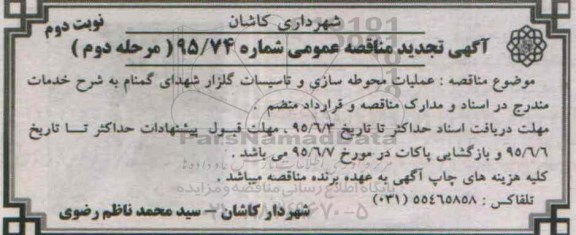 شهرداری کاشان
نوبت دوم
آگهی تجدید مناقصه عمومی شماره ۹۵/۷۴ ( مرحله دوم )
موضوع مناقصه : عملیات محوطه سازی و تاسیسات گلزار شهدای گمنام به شرح خدمات
مندرج در اسناد و مدارک مناقصه و قرارداد منضم .
مهلت دریافت اسناد حداکثر تا تاریخ ۹۵/۶/۳ ، مهلت قبول پیشنهادات حداکثر تا تاریخ
۹۵/۶/۶ و بازگشایی پاکات در مورخ ۹۵/۶/۷ می باشد .
کلیه هزینه های چاپ آگهی به عهده برنده مناقصه میباشد .
تلفاکس : ۵۵۴۶۵۸۵۸ (۰۳۱)
شهردار کاشان – سید محمد ناظم رضوی
ParsNamadData
پایگاه اطلاع رسانی مناقصه و مزایده